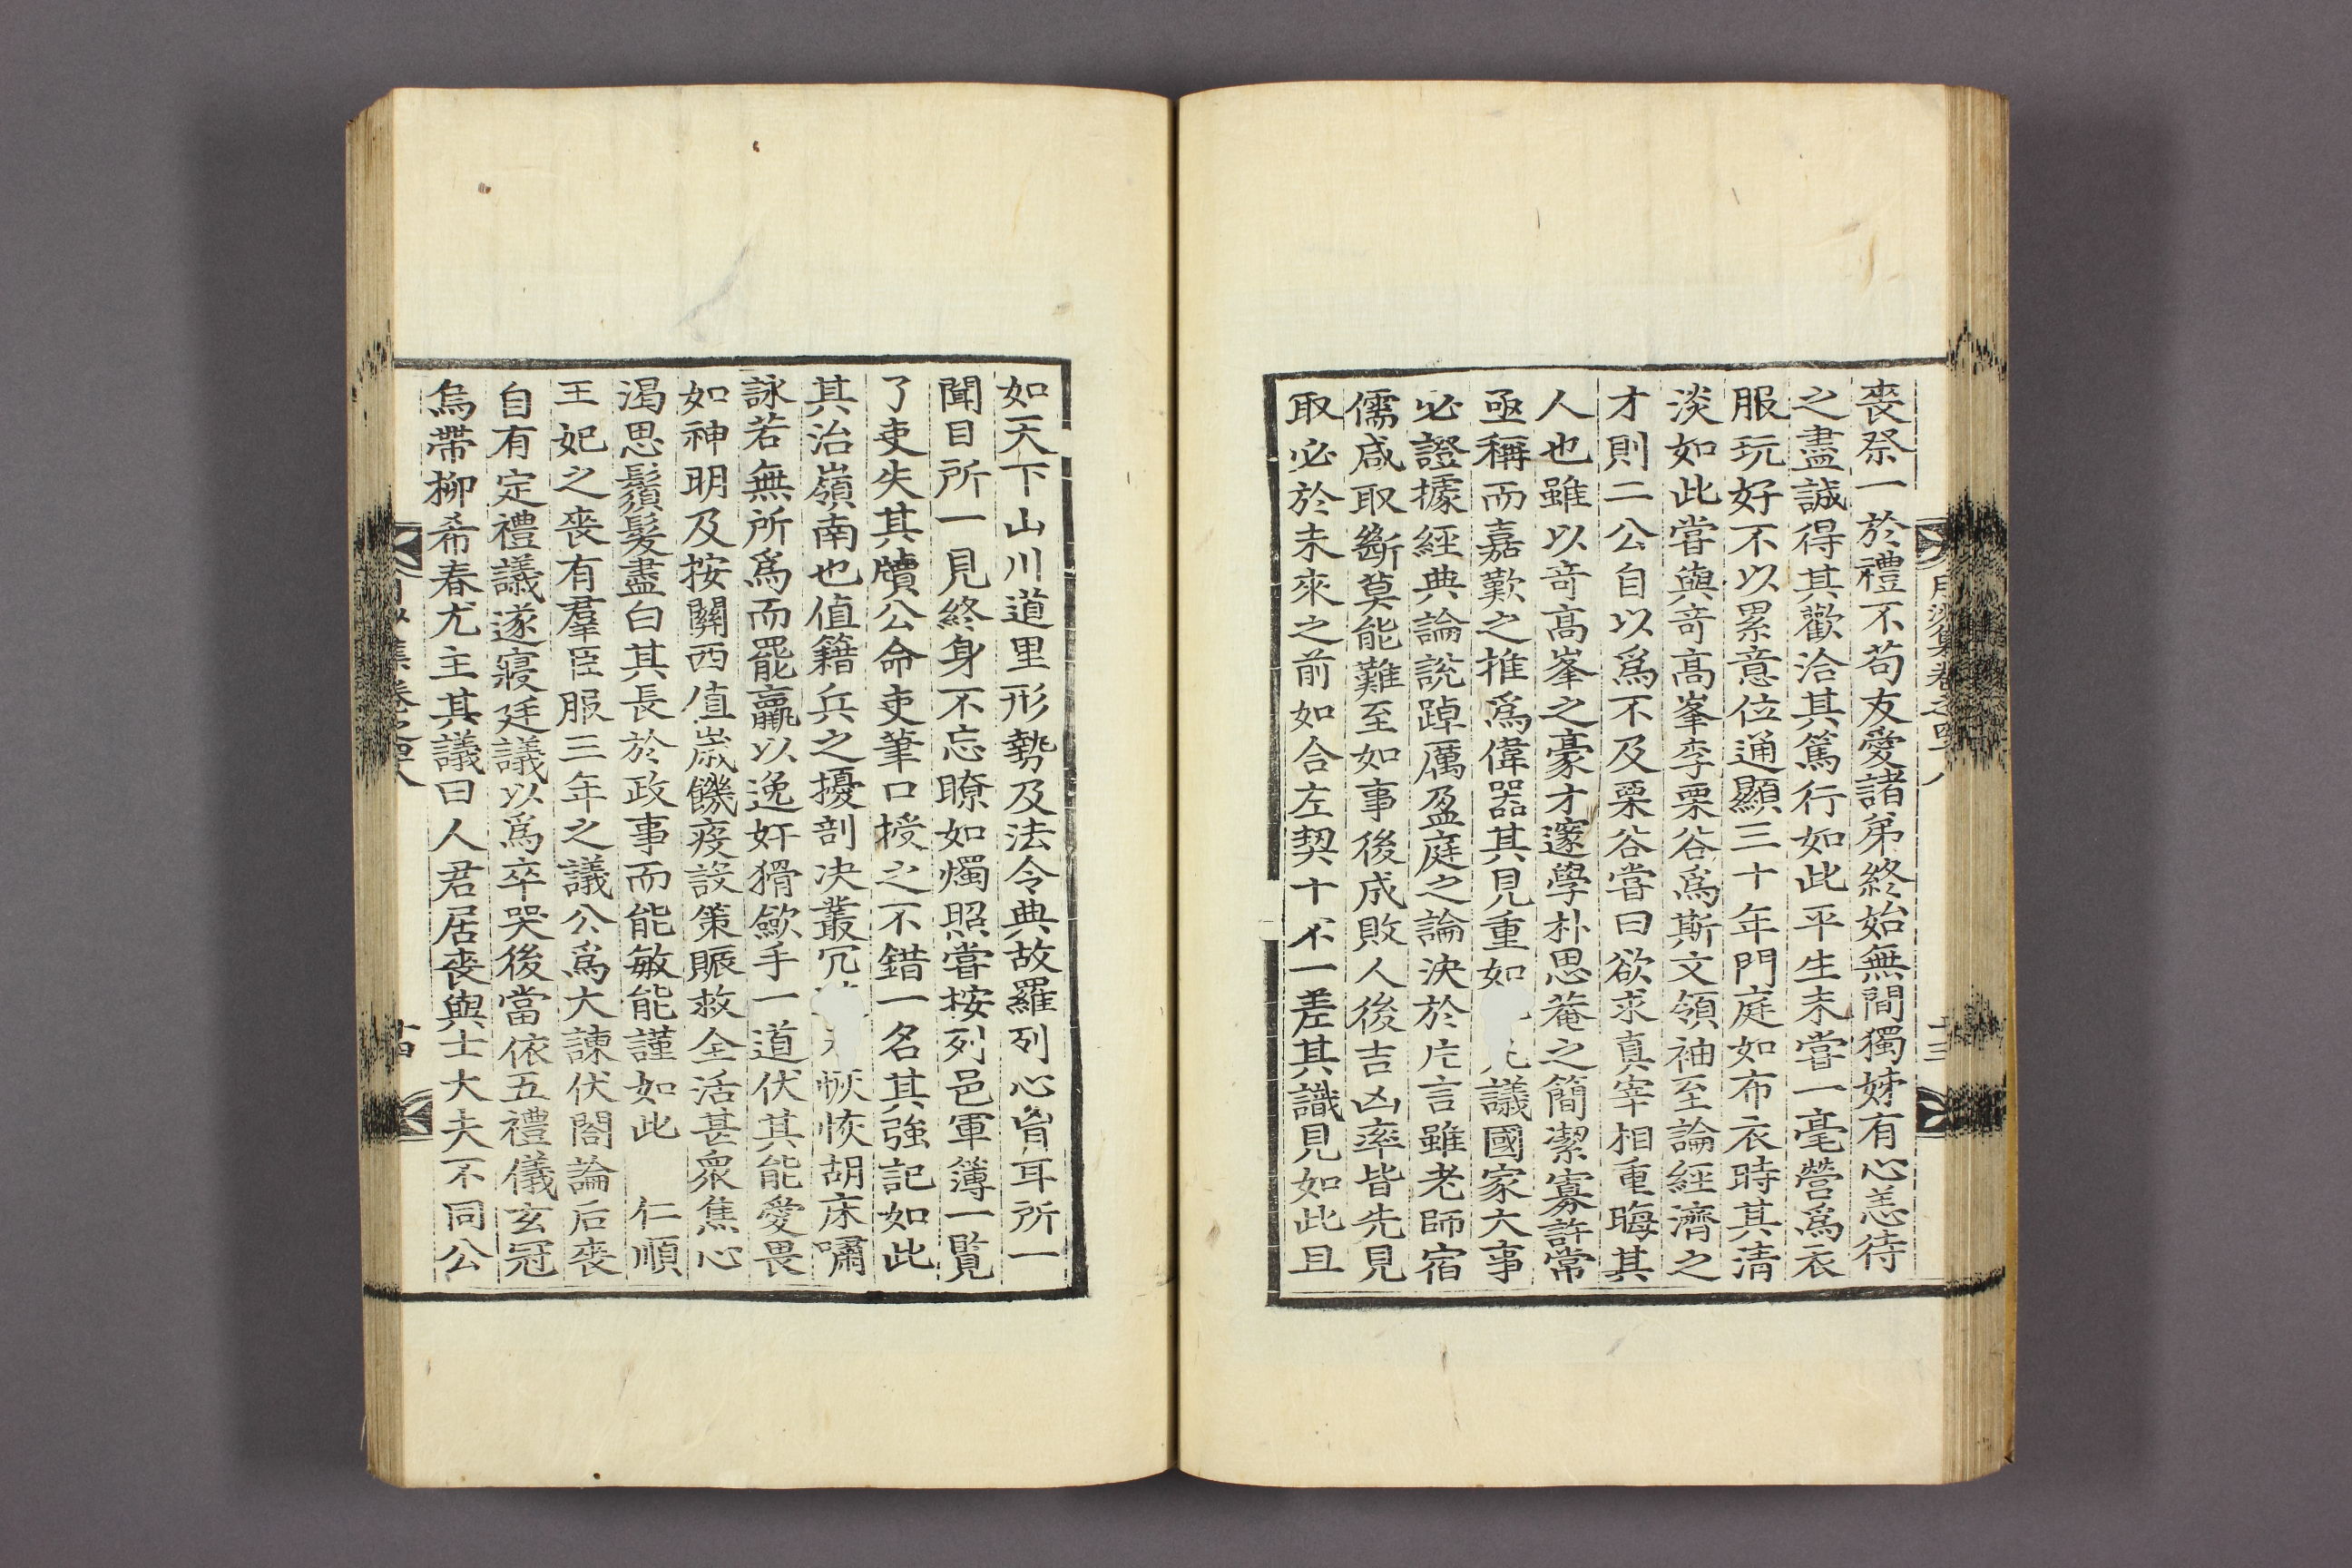 月沙集卷之四十八
十三
喪祭一於禮不苟友愛諸弟終始無間獨姊有心恙待
之盡誠得其歡洽其篤行如此平生未嘗一毫營爲衣
服玩好不以累意位通顯三十年門庭如布衣時其清
淡如此嘗與奇高峯李栗谷爲斯文領袖至論經濟之
才則二公自以爲不及栗谷嘗曰欲求真宰相重晦其
人也雖以奇高峯之豪才邃學朴思菴之簡潔寡許常
亟稱而嘉歎之推爲偉器其見重如 議國家大事
必證據經典論說踔厲盈庭之論決於片言雖老師宿
儒咸取斷莫能難至如事後成敗人後吉凶率皆先見
取必於未來之前如合左契十不一差其識見如此且
如天下山川道里形勢及法令典故羅列心胷耳所一
聞目所一見終身不忘瞭如燭照嘗按列邑軍簿一覽
了吏失其牘公命吏筆口授之不錯一名其強記如此
其治嶺南也値籍兵之擾剖决叢冗 帳恢胡床嘯
詠若無所爲而罷羸以逸奸猾歛手一道伏其能愛畏
如神明及按關西値歲饑疫設策賑救全活甚衆焦心
渴思鬚髮盡白其長於政事而能敏能謹如此 仁順
王妃之喪有羣臣服三年之議公爲大諫伏閤論后喪
自有定禮議遂寢廷議以爲卒哭後當依五禮儀玄冠
烏帶柳希春尤主其議曰人君居喪與士大夫不同公
十四